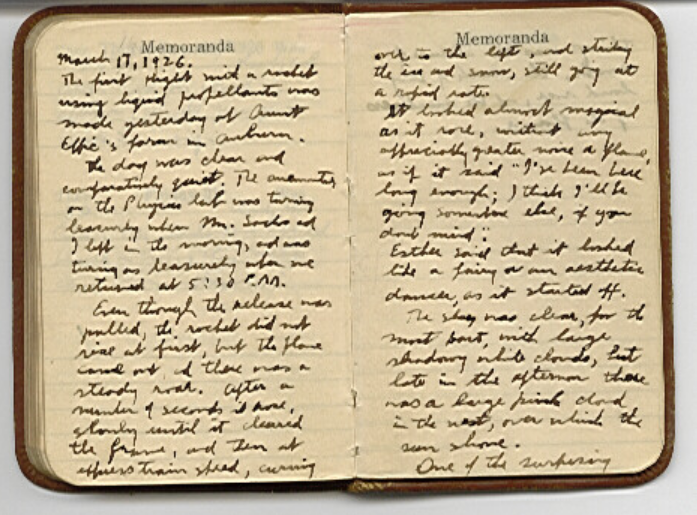 Memoranda
March 17, 1926.
The first flight with a rocket
using liquid propellants was
made yesterday at Aunt
Effie's farm in Auburn.
The day was clear and
comparatively quiet. The anemometer
on the Physics lab was turning
leasurely when Mr. Sachs and
I left in the morning, and was
turning as leasurely when we
returned at 5:30 P.M.
Even though the release was
pulled, the rocket did not
rise at first, but the flame
came out, and there was a
steady roar. After a
number of seconds it rose,
slowly until it cleared
the frame, and then at
express train speed, curving
Memoranda
over to the left, and striking
the ice and snow, still going at
a rapid rate.
It looked almost magical
as it rose, without any
appreciably greater noise or flame,
as if it said "I've been here
long enough; I think I'll be
going somewhere else, if you
don't mind."
Esther said that it looked
like a fairy or an aesthetic
dancer, as it started off.
The sky was clear, for the
most part, with large
shadowy white clouds, but
late in the afternoon there
was a large pink cloud
in the west, over which the
sun shone.
One of the surprising